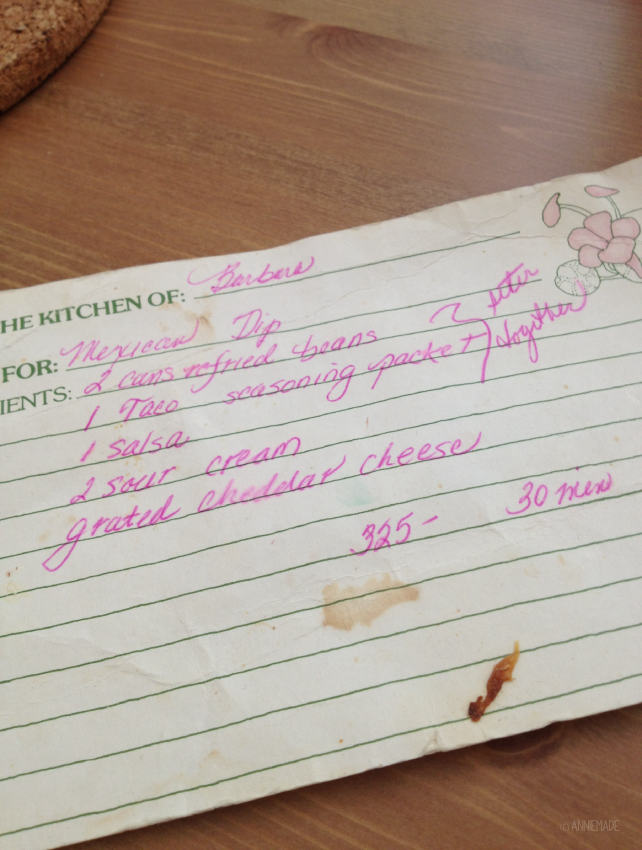 HE KITCHEN OF: Barbara
FOR: Mexican Dip
IENTS: 2 cans refried beans
1 Taco seasoning packet
together
1 salsa
2 sour cream
grated cheddar cheese
325- 30 min
(c) ANNIEMADE